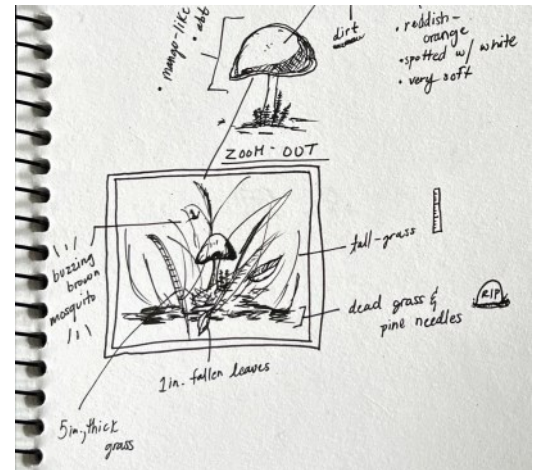 • mango-like
• abt
dirt
• reddish-
orange
• spotted w/ white
• very soft
ZOOM-OUT
buzzing
brown
mosquito
tall-grass
dead grass &
pine needles
RIP
1in. fallen leaves
5in., thick
grass